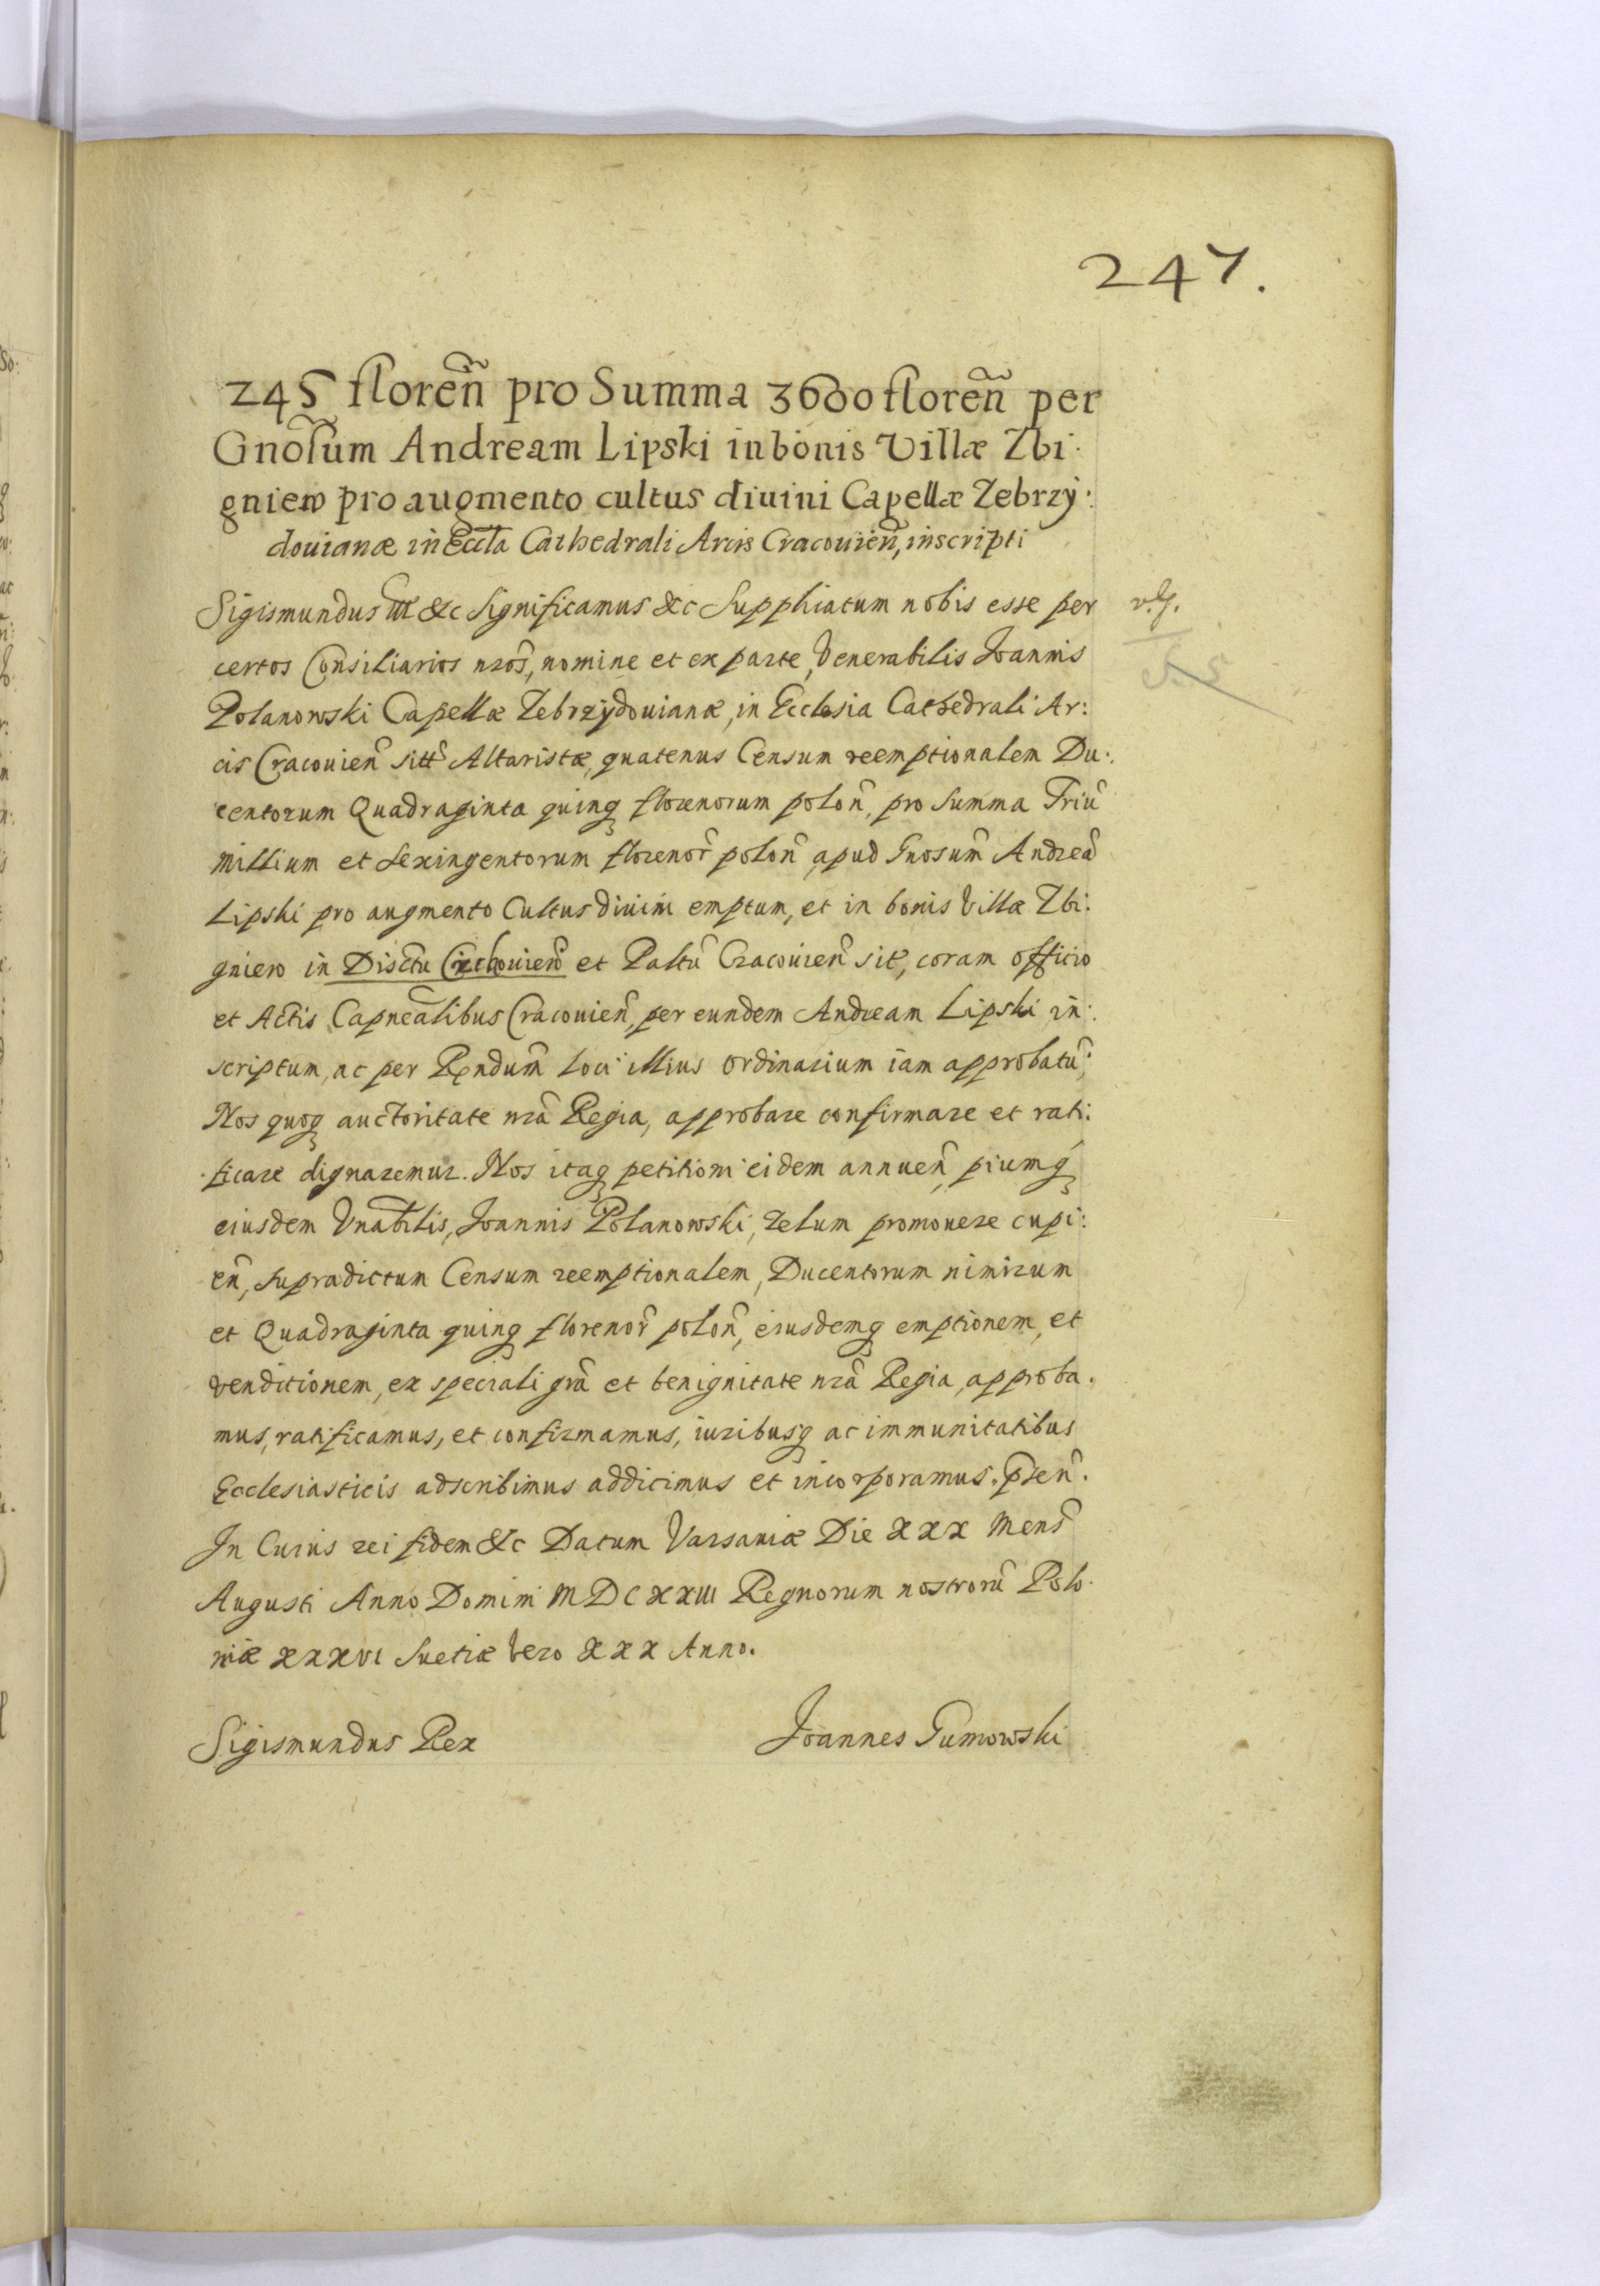 247.
245 floreñ pro Summa 3600 floreñ per
Gnosum Andream Lipski in bonis Villæ Zbi:
gniew pro augmento cultus diuini Capellæ Zebrzÿ:
douianæ in Eccla Cathedrali Arcis Cracouieñ, inscripti
Sigismundus III &c Significamus &c Supphiatum nobis esse per
certos Consiliarios nros, nomine et ex parte, Venerabilis Joannis
Polanowski Capellæ Zebrzÿdouianæ, in Ecclesia Cathedrali Ar:
cis Cracouieñ sitt Altaristæ, quatenus Censum reemptionalem Du:
centorum Quadraginta quinq florenorum poloñ, pro Summa Triũ
Millium et Sexingentorum florenor poloñ, apud Gnosum Andreã
Lipski pro augmento Cultus diuini emptum, et in bonis Villæ Zbi:
gniew in Disctu et Paltũ Cracouieñ sit, coram officio
et Actis Capnealibus Cracouieñ, per eundem Andream Lipski in:
scriptum, ac per Rendum loci illius ordinarium iam approbatũ;
Nos quoq auctoritate nrã Regia, approbare confirmare et rati:
ficare dignaremur. Nos itaq petitioni eidem annueñ, piumq
eiusdem Vnabilis, Joannis Polanowski, zelum promouere cupi:
eñ, supradictum Censum reemptionalem, Ducentorum nimirum
et Quadraginta quinq florenor poloñ, eiusdemq emptionem, et
venditionem, ex speciali grã et benignitate nrã Regia, approba.
mus, ratificamus, et confirmamus, iuribusq ac immunitatibus
Ecclesiasticis adscribimus addicimus et incorporamus. pseñ.
In Cuius rei fidem &c Datum Varsauiæ Die XXX Mens
Augusti Anno Domini MDCXXIII Regnorum nostrorũ Polo.
niæ XXXVI Suetiæ Vero XXX Anno.
Sigismundus Rex Joannes Gumowski